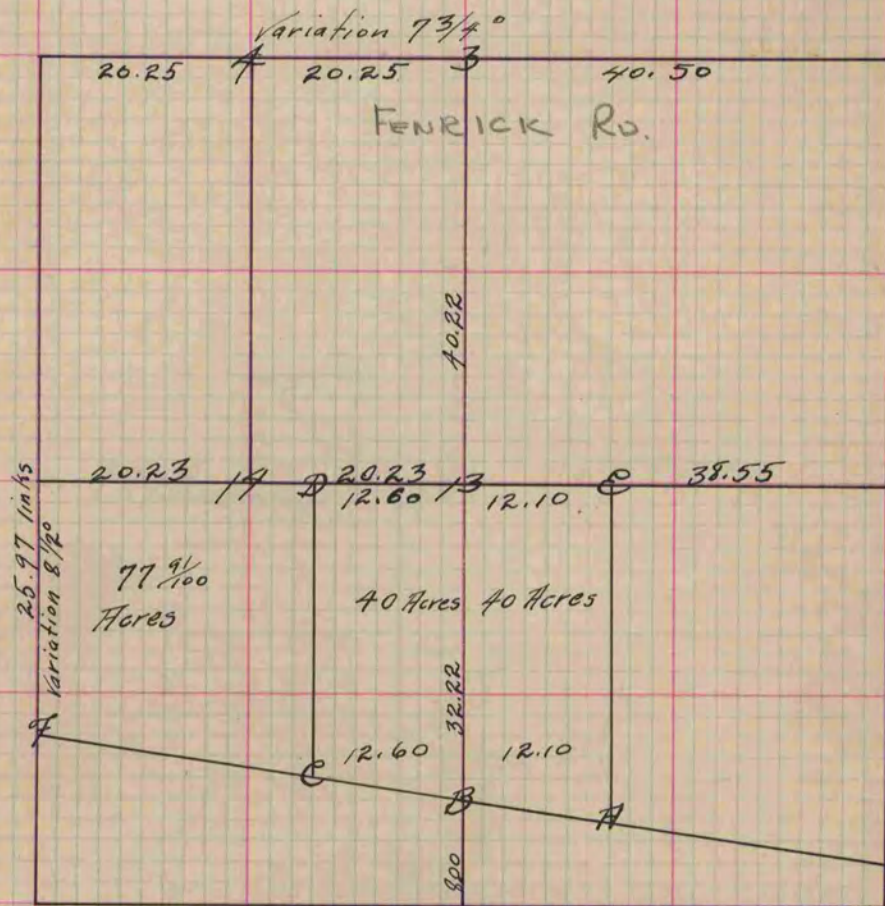 Variation 7 3/4 °
20.25 4 20.25 3 40.50
FENRICK RD.
40.22
20.23 14 D 20.23 13 E 38.55
12.60 12.10
25.97 links
Variation 8 1/2°
77 91/100
Acres
40 Acres 40 Acres
32.22
F
12.60 12.10
C B A
800